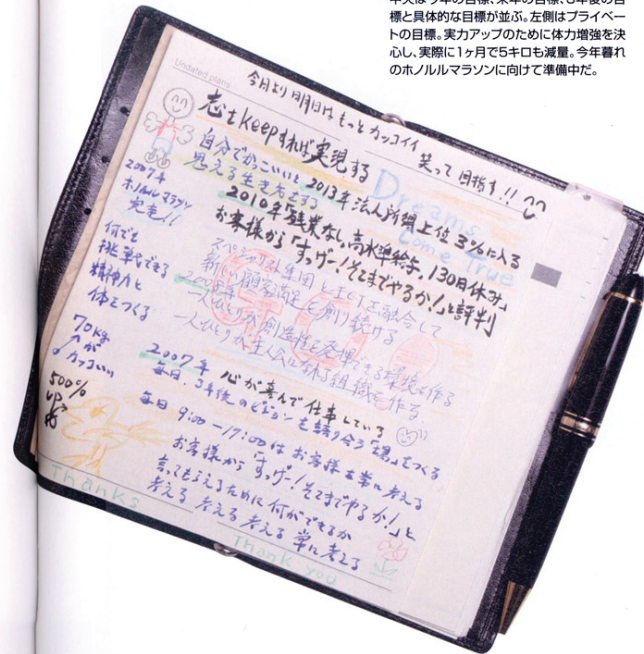 標と具体的な目標が並ぶ。左側はプライベー
トの目標。実力アップのために体力増強を決
心し、実際に1ヶ月で5キロも減量。今年暮れ
のホノルルマラソンに向けて準備中だ。
Undated plans
今日より明日はもっとカッコイイ 笑って目指す!!
志をkeepすれば実現する
Dreams
Come True
自分でかっこいいと
思える生き方をする
2013年 法人所得上位3%に入る
2010年「残業なし、高水準給与、130日休み」
お客様から「すっげー!そこまでやるか!」と評判
スペシャリスト集団とICTを融合して
新しい顧客満足を創り続ける
2008年
一人ひとりが創造性を発揮できる環境を作る
一人ひとりが主人公になれる組織を作る
2007年 心が喜んで仕事している
毎日、3年後のビジョンを語り合う「場」をつくる
毎日 9:00-17:00はお客様を常に考える
お客様から「すっげー!そこまでやるか!」と
言ってもらえるために何ができるか
考える 考える 考える 常に考える
2007年
ホノルルマラソン
完走!!
何でも
挑戦できる
精神力と
体をつくる
70kg
が
カッコいい
500%
UP
Thanks
Thank you